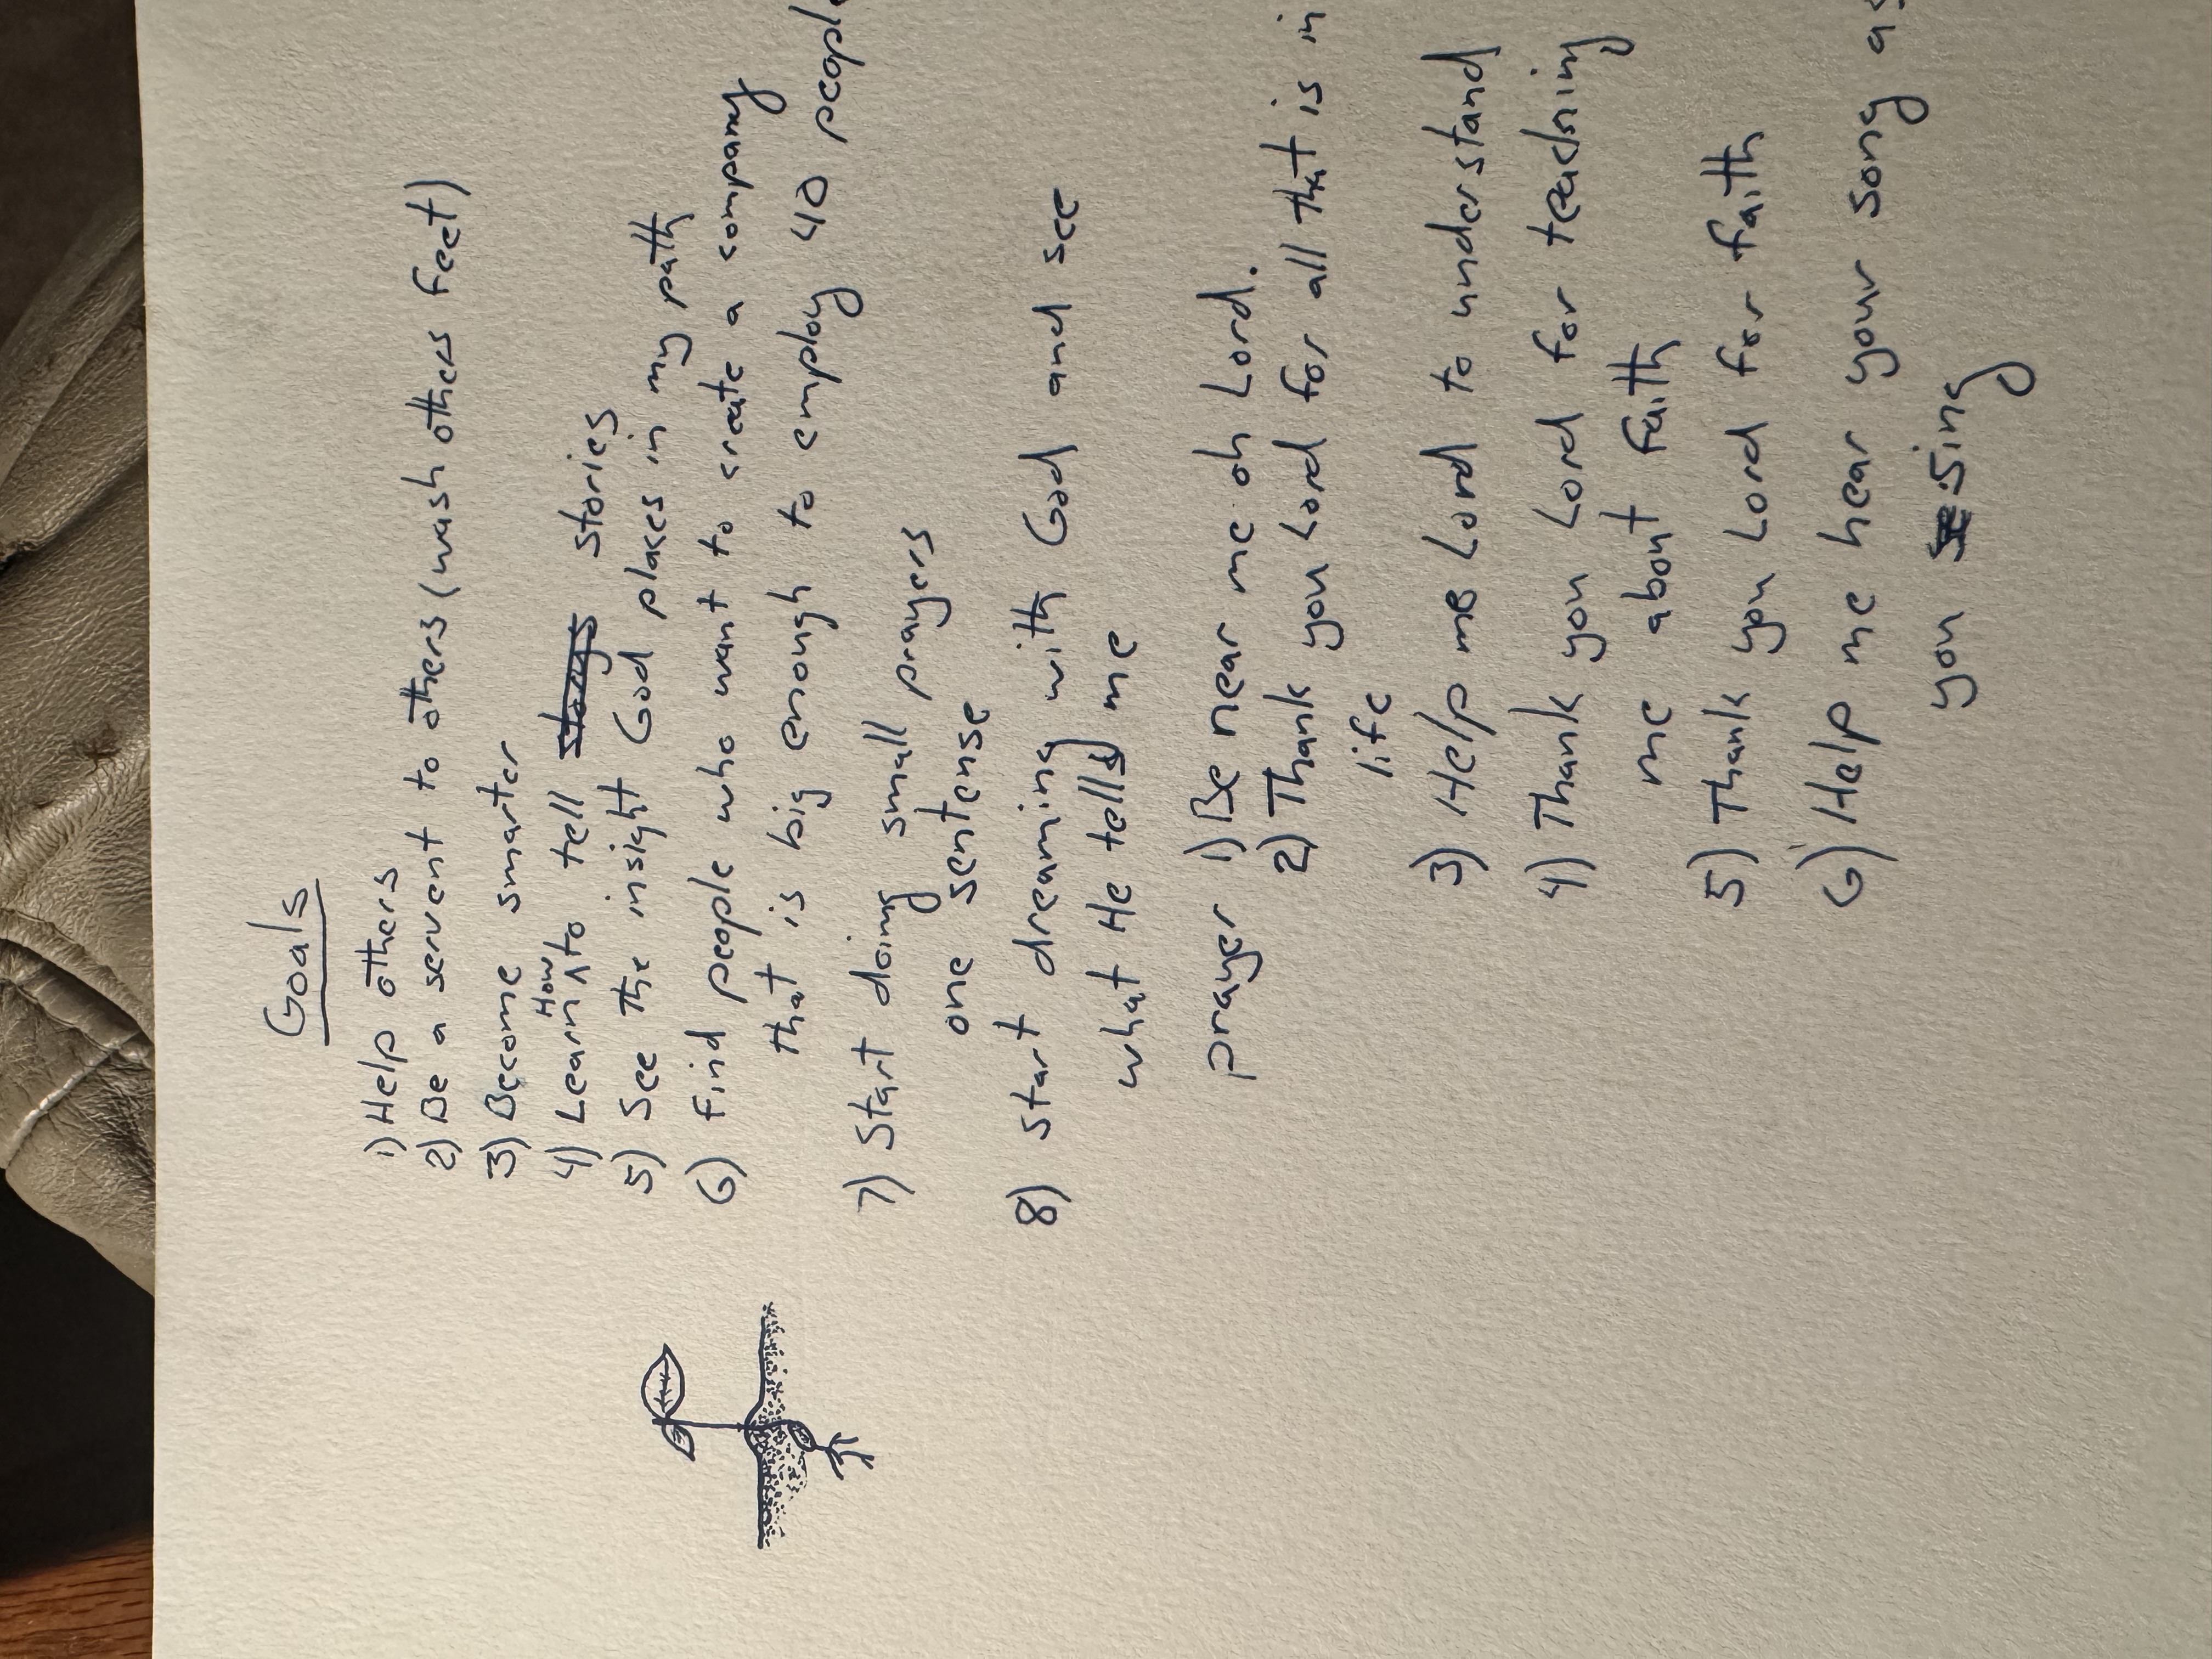 Goals
1) Help others
2) Be a servent to others (wash others feet)
3) Become smarter
4) Learn How to tell stories
5) See the insight God places in my path
6) Find people who want to create a company
that is big enough to employ 40 people
7) Start doing small prayers
one sentense
8) Start dreaming with God and see
what He tells me
prayer 1) Be near me oh Lord.
2) Thank you Lord for all that is in
life
3) Help me Lord to understand
4) Thank you Lord for teaching
me about faith
5) Thank you Lord for faith
6) Help me hear your song as
you sing